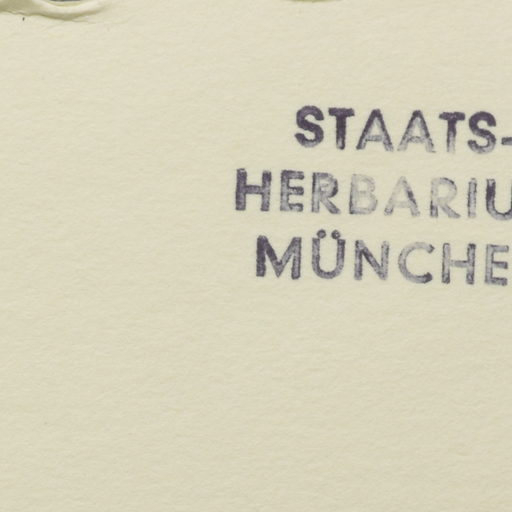 STAATS-
HERBARIU
MÜNCHE